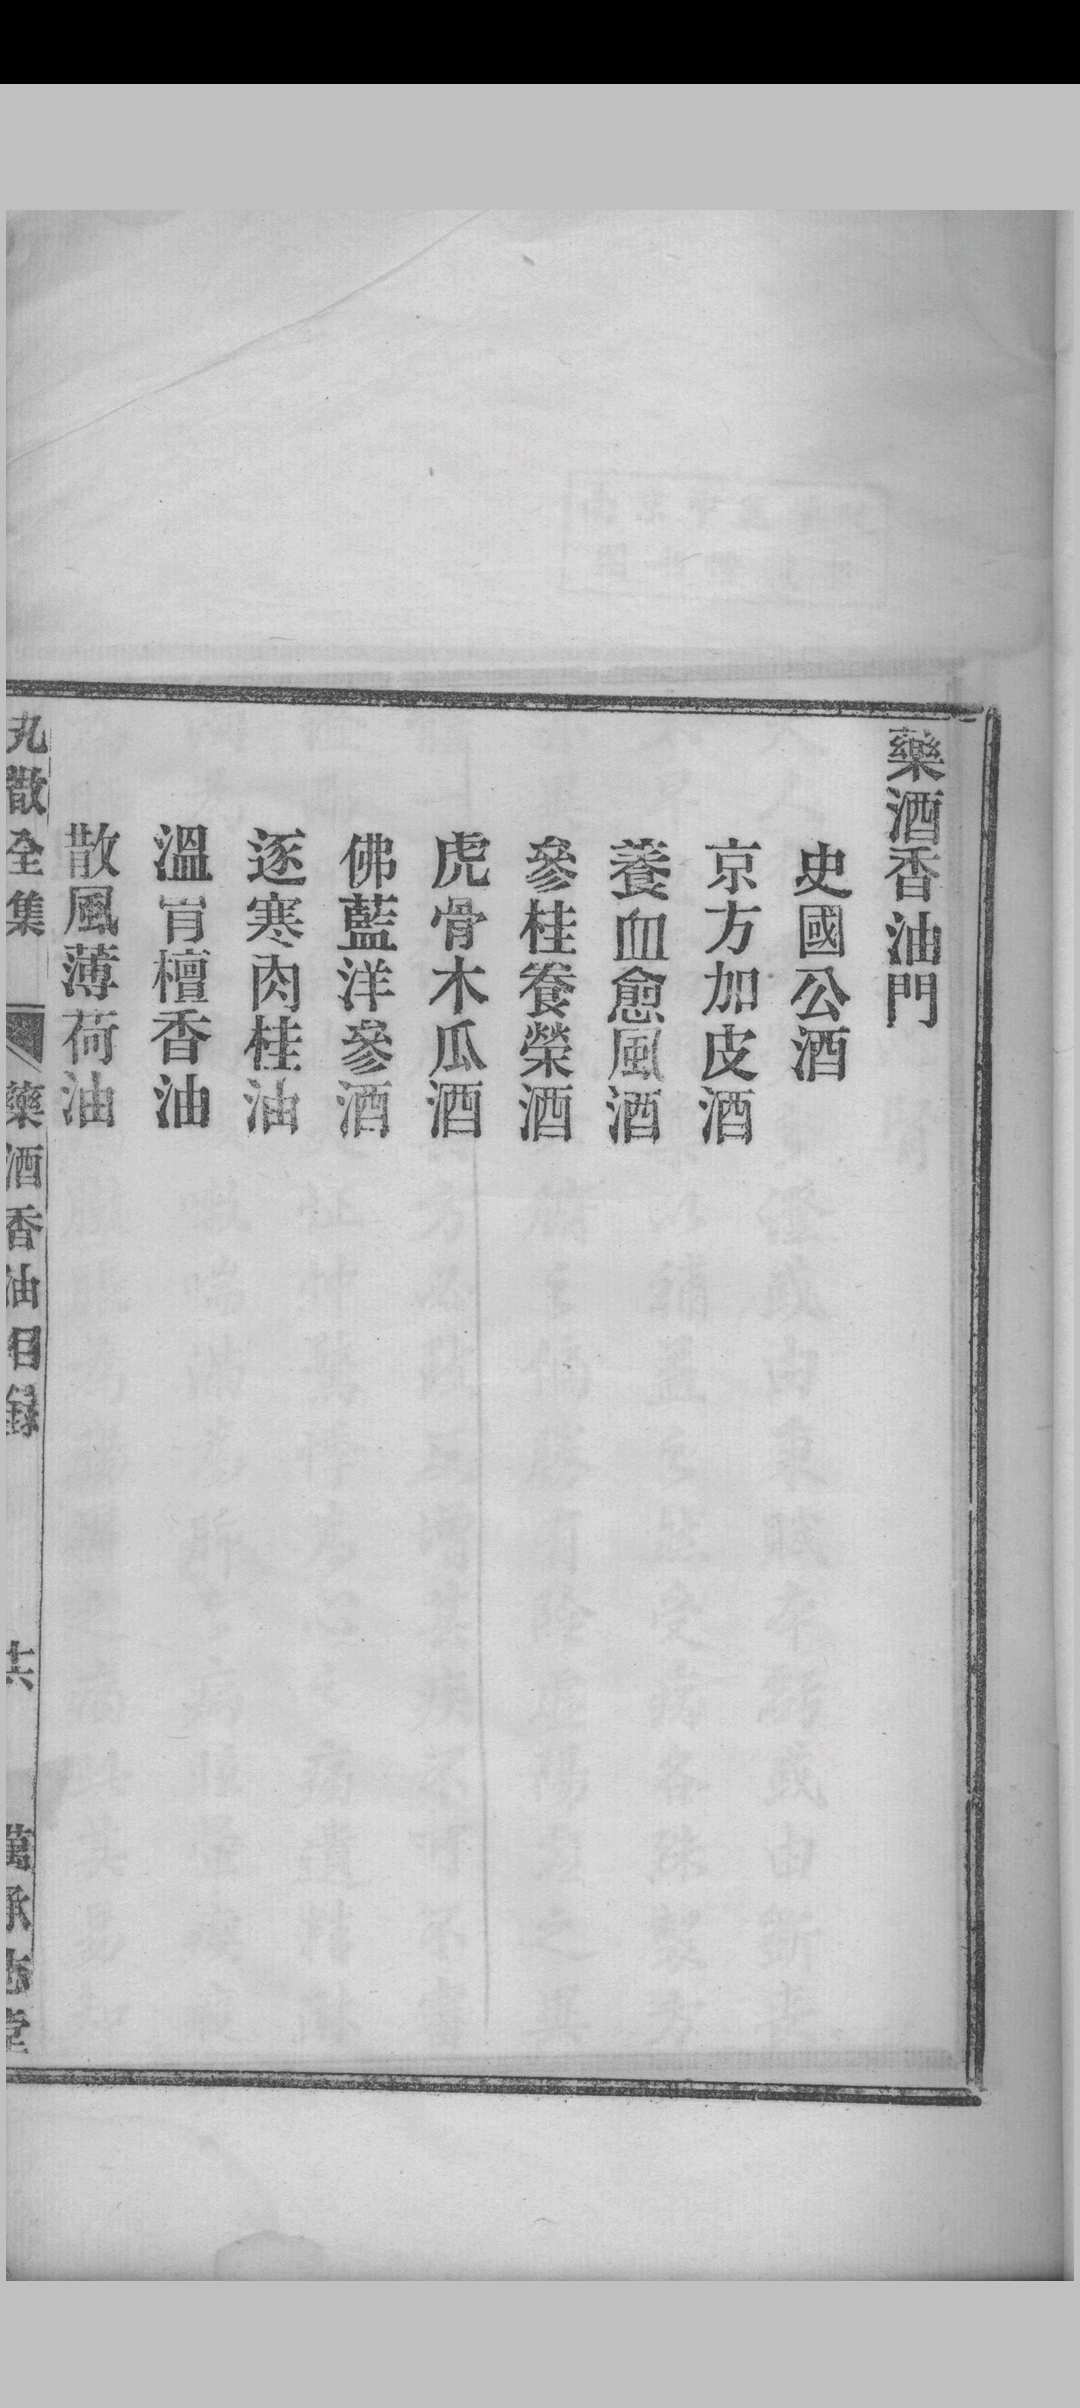 藥酒香油門
史國公酒
京方加皮酒
養血愈風酒
參桂養榮酒
虎骨木瓜酒
佛藍洋參酒
逐寒肉桂油
溫胃檀香油
散風薄荷油
丸散全集
藥酒香油目錄
十六
萬承志堂